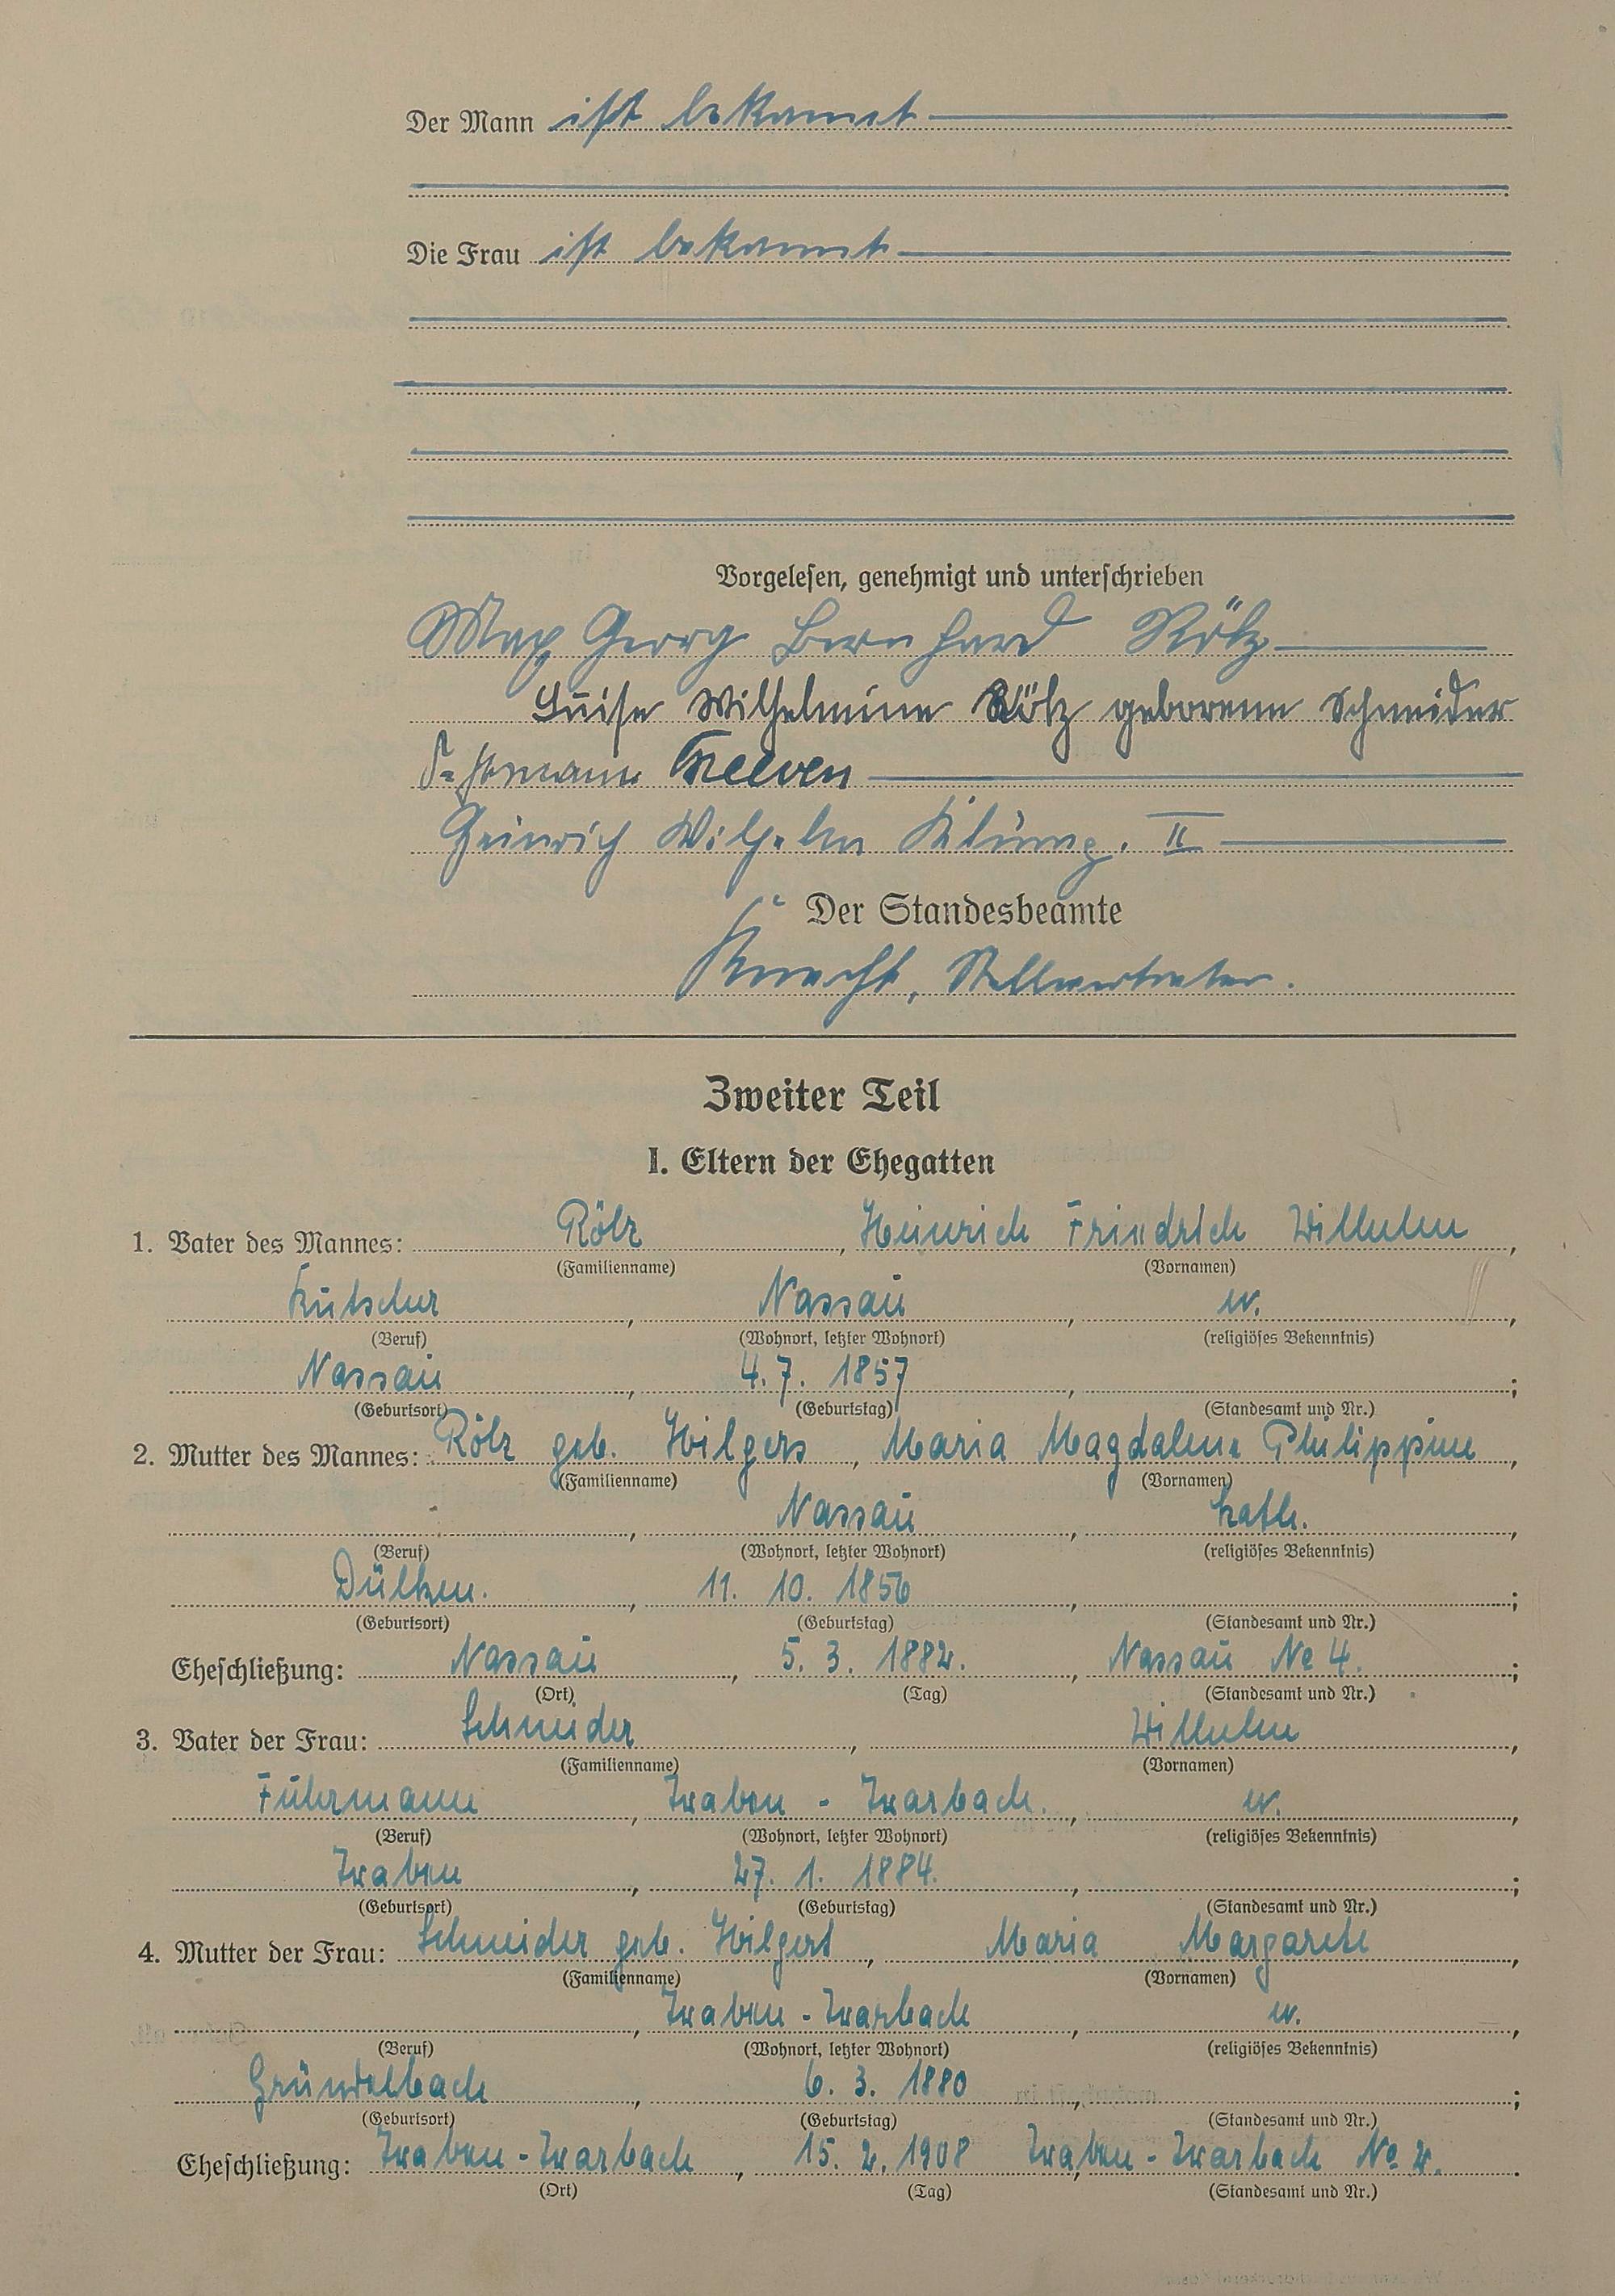 Der Mann ist bekannt
Die Frau ist bekannt
Vorgelesen, genehmigt und unterschrieben
Max Georg Bernhard Rölz
Luise Wilhelmine Rölz geborene Schneider
Hermann
Heinrich Wilhelm II
Der Standesbeamte
Knecht, Stellvertreter.
Zweiter Teil
I. Eltern der Ehegatten
1. Vater des Mannes: Rölz, Heinrich Friedrich Wilhelm,
(Familienname) (Vornamen)
Kutscher, Nassau, ev.,
(Beruf) (Wohnort, letzter Wohnort) (religiöses Bekenntnis)
Nassau, 4. 7. 1857, ;
(Geburtsort) (Geburtstag) (Standesamt und Nr.)
2. Mutter des Mannes: Rölz geb. Hilgers, Maria Magdalena Philippine,
(Familienname) (Vornamen)
, Nassau, kath.,
(Beruf) (Wohnort, letzter Wohnort) (religiöses Bekenntnis)
Dülken., 11. 10. 1856, ;
(Geburtsort) (Geburtstag) (Standesamt und Nr.)
Eheschließung: Nassau, 5. 3. 1882., Nassau No 4. ;
(Ort) (Tag) (Standesamt und Nr.)
3. Vater der Frau: Schneider, Wilhelm,
(Familienname) (Vornamen)
Fuhrmann, Traben - Trarbach., ev.,
(Beruf) (Wohnort, letzter Wohnort) (religiöses Bekenntnis)
Traben, 27. 1. 1884., ;
(Geburtsort) (Geburtstag) (Standesamt und Nr.)
4. Mutter der Frau: Schneider geb. Hilgert, Maria Margarete,
(Familienname) (Vornamen)
, Traben - Trarbach, ev.,
(Beruf) (Wohnort, letzter Wohnort) (religiöses Bekenntnis)
Gründelbach, 6. 3. 1880, ;
(Geburtsort) (Geburtstag) (Standesamt und Nr.)
Eheschließung: Traben - Trarbach, 15. 2. 1908, Traben - Trarbach No 2. .
(Ort) (Tag) (Standesamt und Nr.)